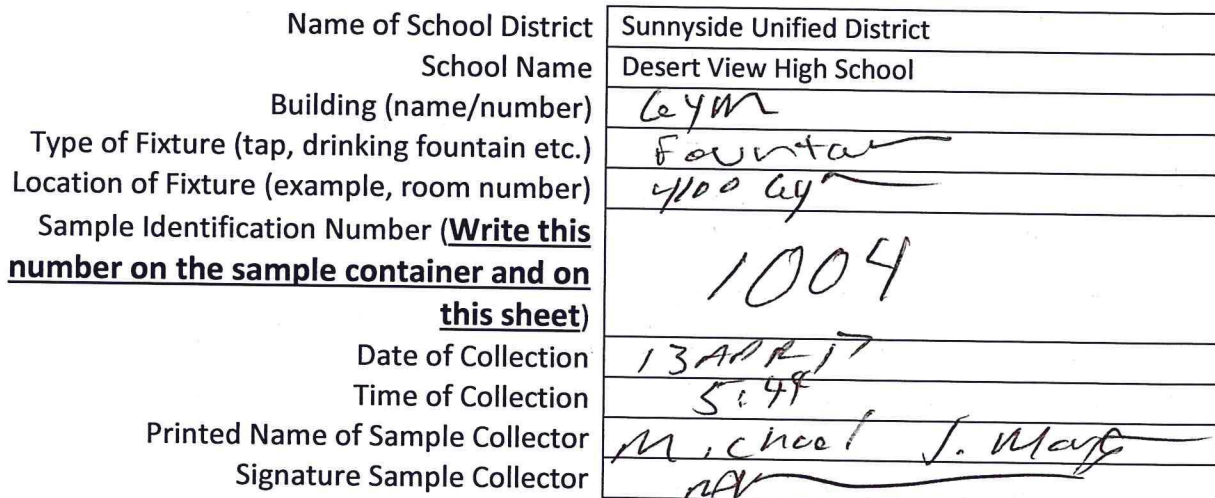 Name of School District Sunnyside Unified District
School Name Desert View High School
Building (name/number) Gym
Type of Fixture (tap, drinking fountain etc.) Fountain
Location of Fixture (example, room number) 4100 Gym
Sample Identification Number (Write this
number on the sample container and on
this sheet)
1004
Date of Collection 13 APR 17
Time of Collection
Printed Name of Sample Collector Michael J.
Signature Sample Collector